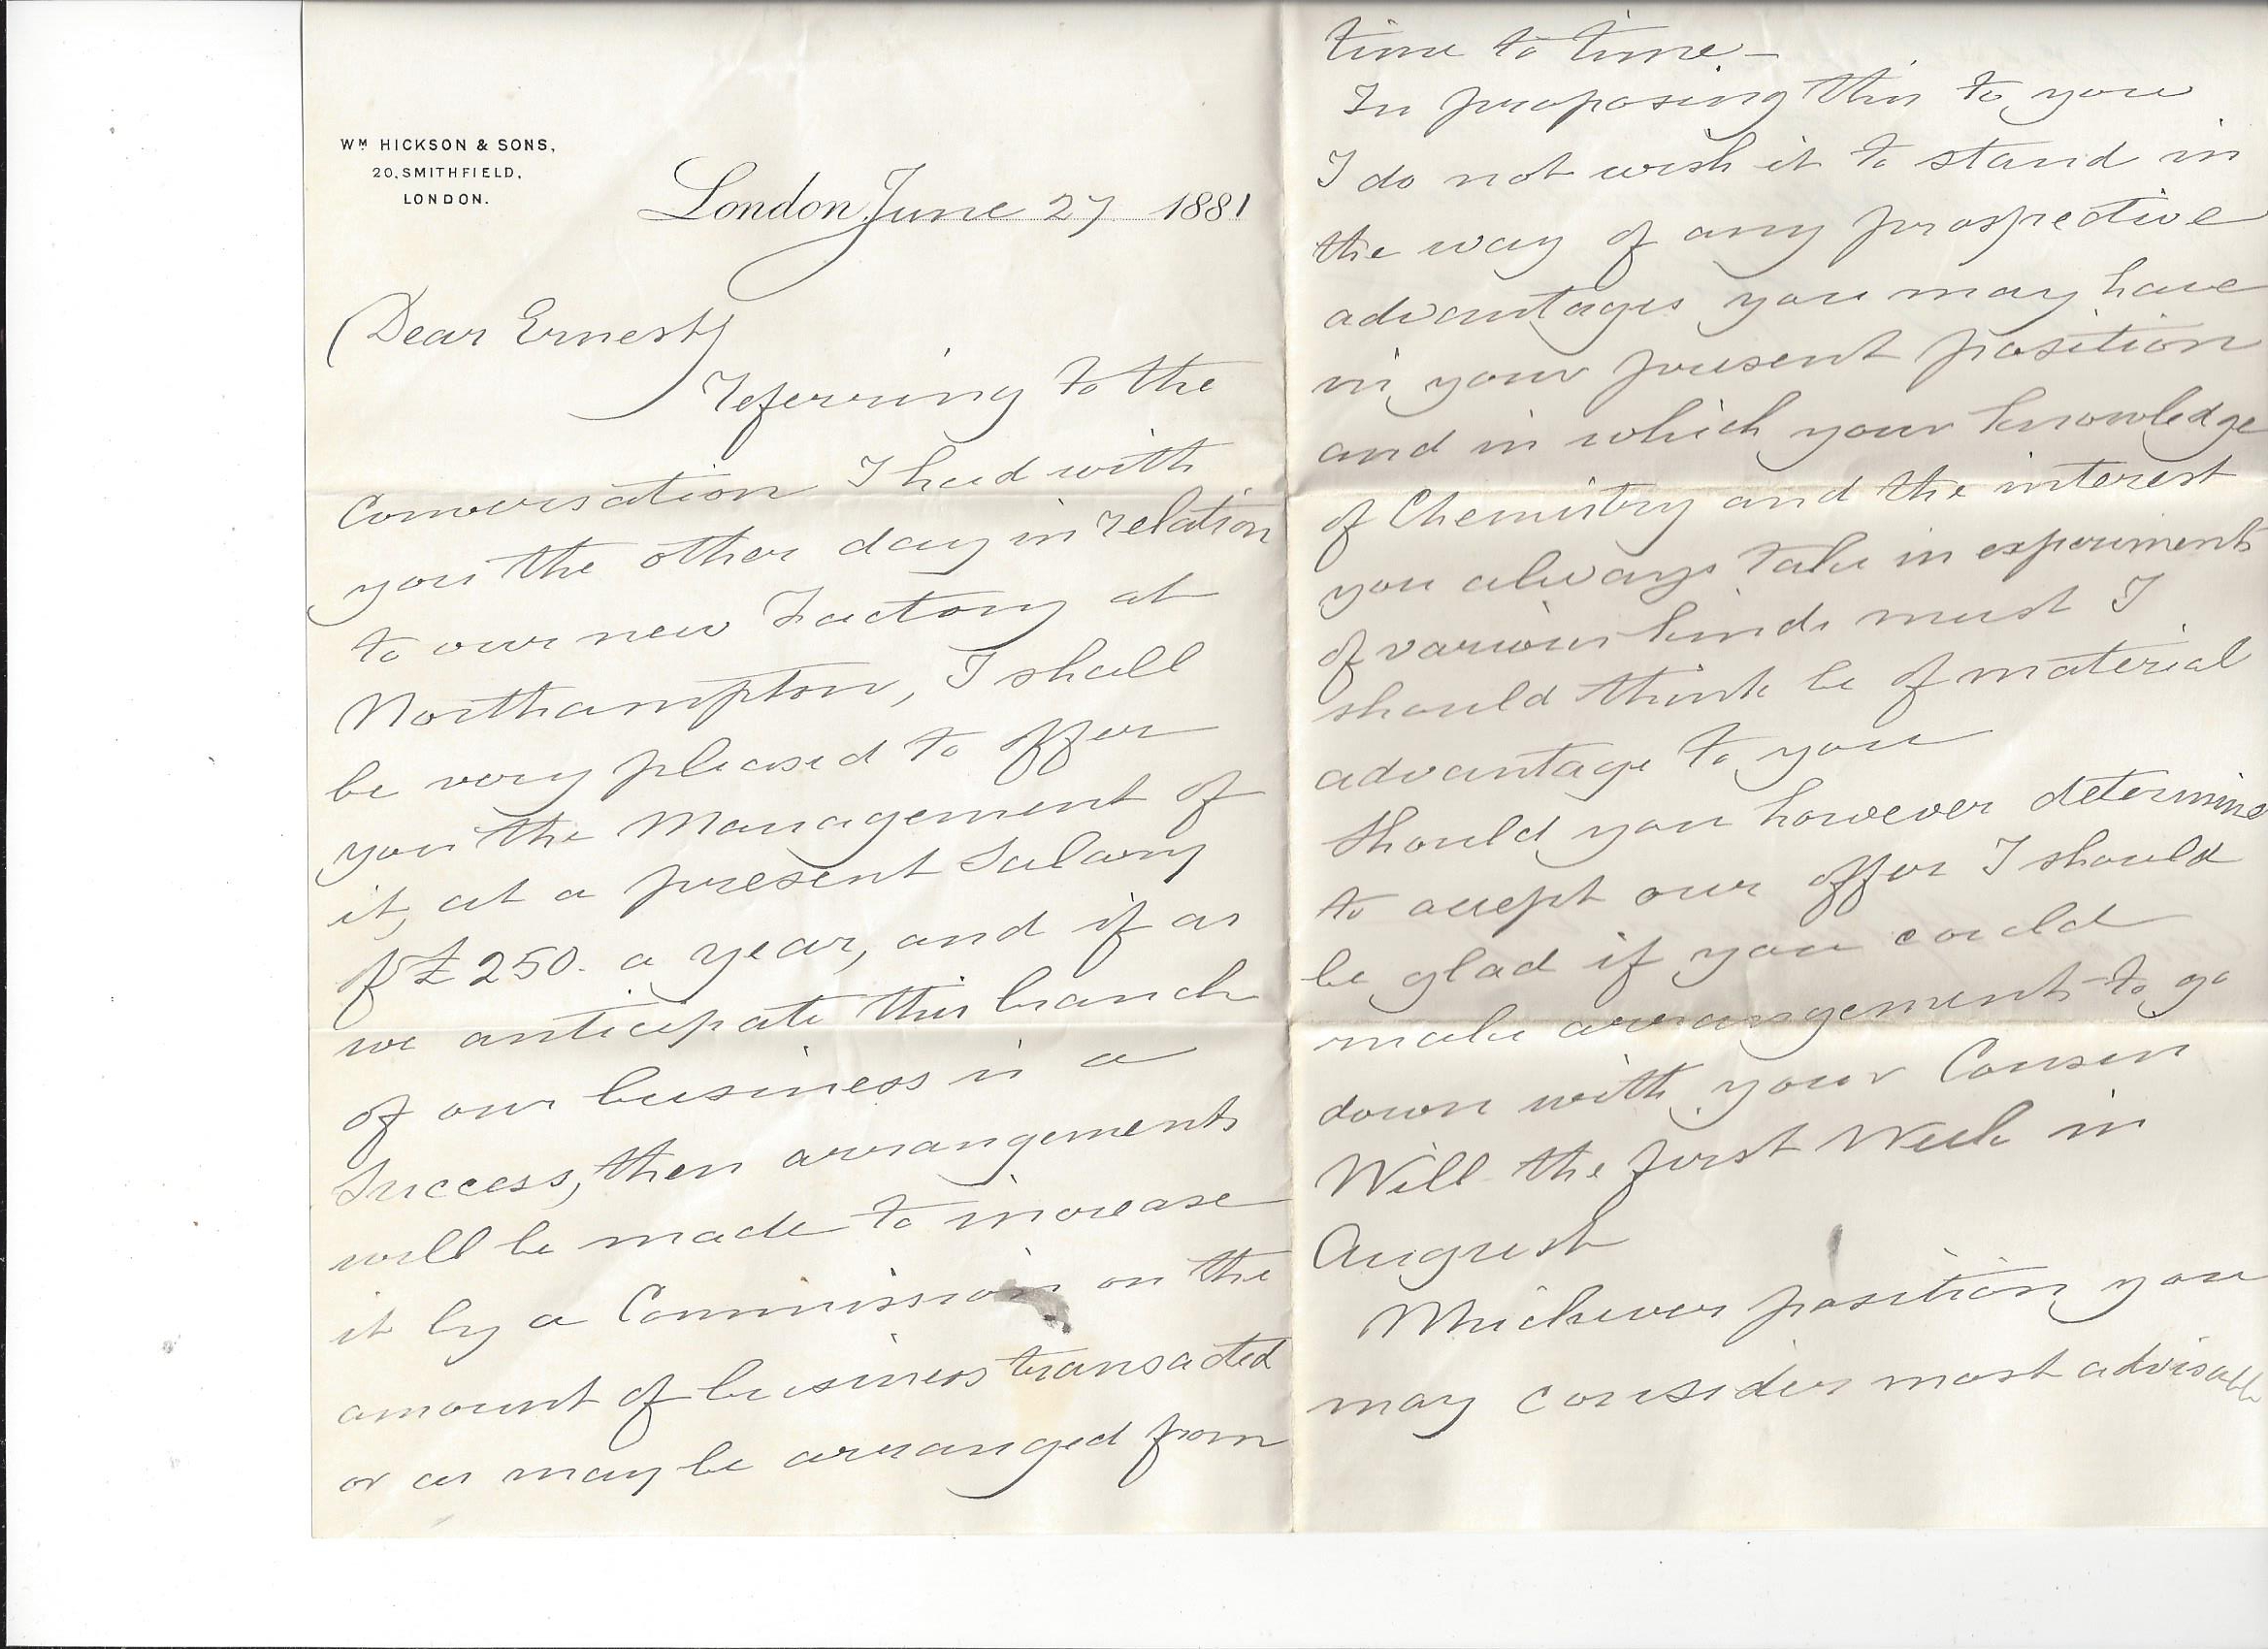 WM HICKSON & SONS,
20, SMITHFIELD,
LONDON.
London June 27 1881
Dear Ernest
referring to the
Conversation I had with
you the other day in relation
to our new Factory at
Northampton, I shall
be very pleased to offer
you the Management of
it, at a present Salary
of £250. a year, and if as
we anticipate this branch
of our business is a
Success, then arrangements
will be made to increase
it by a Commission on the
amount of business transacted
or as may be arranged from
time to time —
In proposing this to you
I do not wish it to stand in
the way of any prospective
advantages you may have
in your present position
and in which your knowledge
of Chemistry and the interest
you always take in experiments
of various kinds must I
should think be of material
advantage to you
Should you however determine
to accept our offer I should
be glad if you could
make arrangements to go
down with your Cousin
Will the first Week in
August
Whichever position you
may consider most advisable